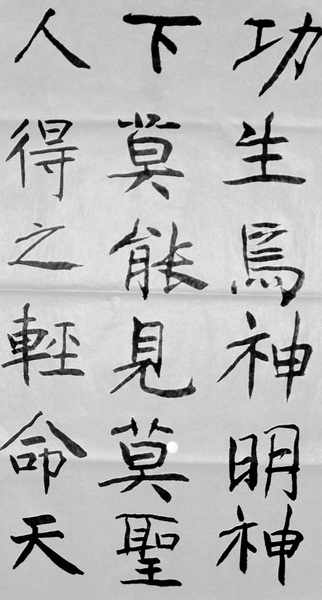 功生焉神明神
下莫能見莫聖
人得之輕命天